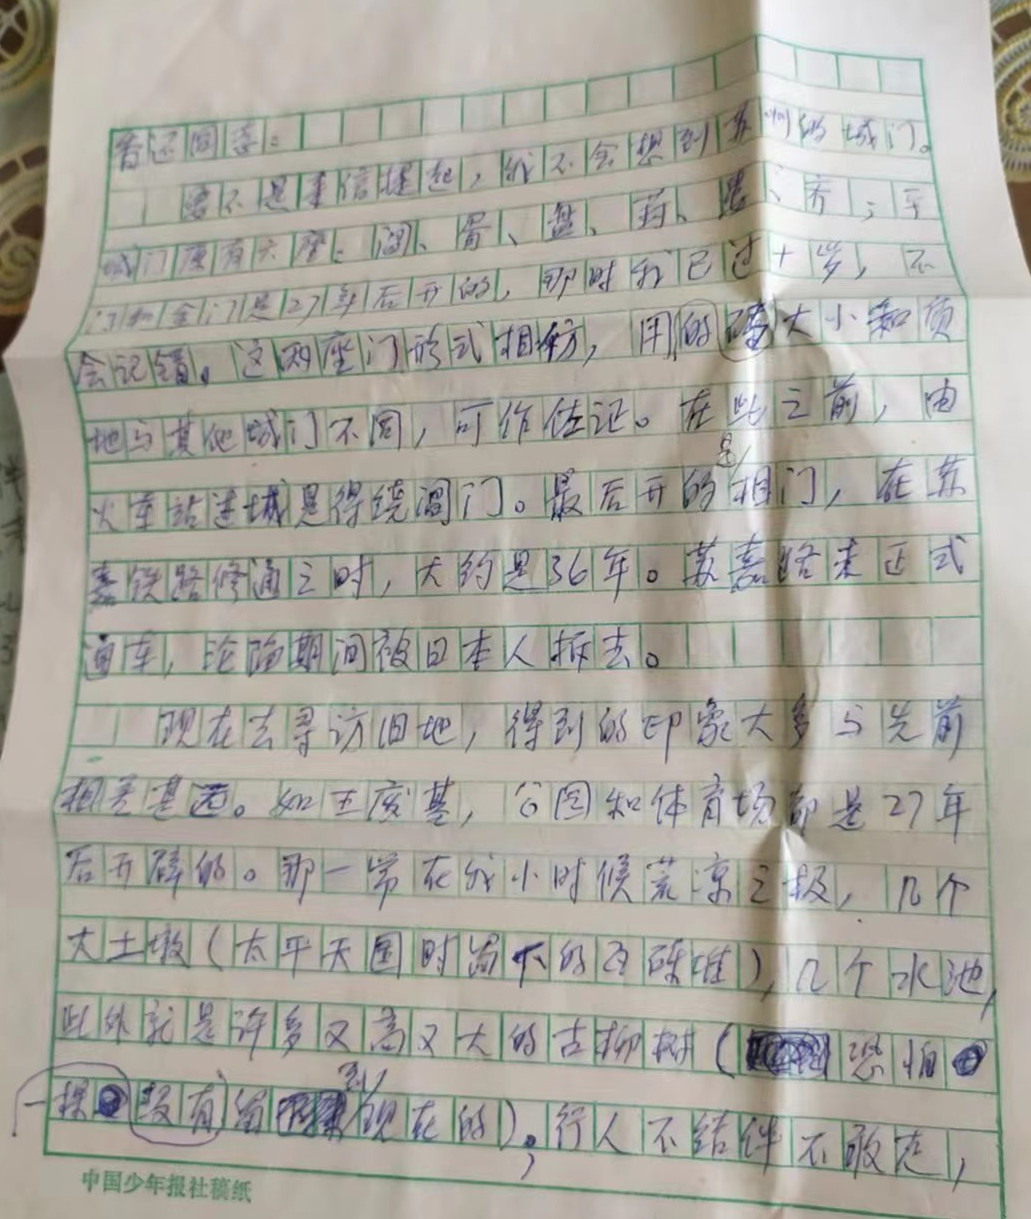 要不是来信提起，我不会想到苏州的城门。
城门原有六座：阊、胥、盘、葑、娄、齐；平
门和金门是27年后开的，那时我已过十岁，不
会记错。这两座门形式相仿，用的砖大小和质
地与其他城门不同，可作佐证。在此之前，由
火车站进城是得绕阊门。最后开的是相门，在苏
嘉铁路修通之时，大约是36年。苏嘉路未正式
通车，沦陷期间被日本人拆去。
现在去寻访旧地，得到的印象大多与先前
相差甚远。如王废基，公园和体育场都是27年
后开辟的。那一带在我小时候荒凉之极，几个
大土墩（太平天国时留下的瓦砾堆），几个水池，
此外就是许多又高又大的古柳树（恐怕
一棵没有留到现在的），行人不结伴不敢走，
中国少年报社稿纸